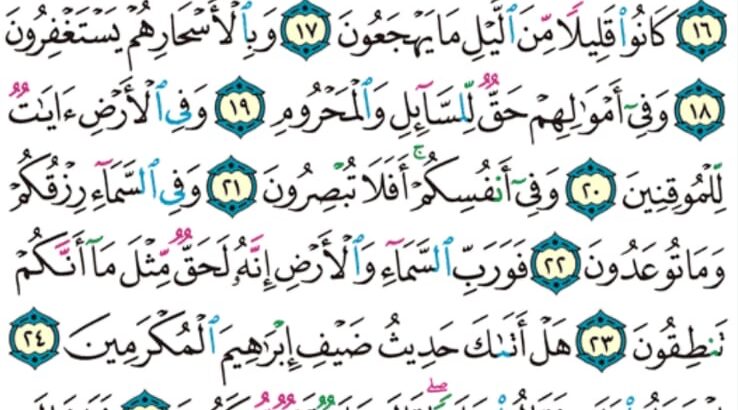 ١٦ كَانُوا۟ قَلِيلًا مِّنَ ٱلَّيْلِ مَا يَهْجَعُونَ ١٧ وَبِٱلْأَسْحَارِ هُمْ يَسْتَغْفِرُونَ
١٨ وَفِىٓ أَمْوَٰلِهِمْ حَقٌّ لِّلسَّآئِلِ وَٱلْمَحْرُومِ ١٩ وَفِى ٱلْأَرْضِ ءَايَٰتٌ
لِّلْمُوقِنِينَ ٢٠ وَفِىٓ أَنفُسِكُمْ ۚ أَفَلَا تُبْصِرُونَ ٢١ وَفِى ٱلسَّمَآءِ رِزْقُكُمْ
وَمَا تُوعَدُونَ ٢٢ فَوَرَبِّ ٱلسَّمَآءِ وَٱلْأَرْضِ إِنَّهُۥ لَحَقٌّ مِّثْلَ مَآ أَنَّكُمْ
تَنطِقُونَ ٢٣ هَلْ أَتَىٰكَ حَدِيثُ ضَيْفِ إِبْرَٰهِيمَ ٱلْمُكْرَمِينَ ٢٤